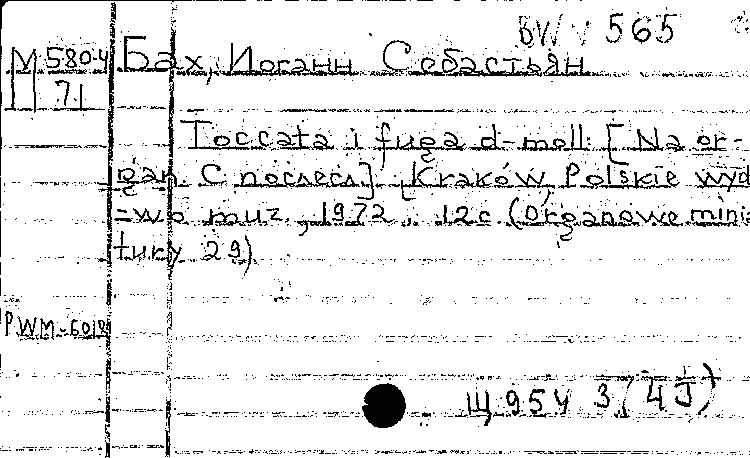 BWV 565
М 580-4 Бах, Иоганн Себастьян
П 71
Toccata i fuga d-moll: [Na or-
gan. С послесл.]. Kraków, Polskie wyd
-wo muz., 1972. 12 с. (Organowe minia
tury 29)
PWM-6018
Щ 954 3 (4J)